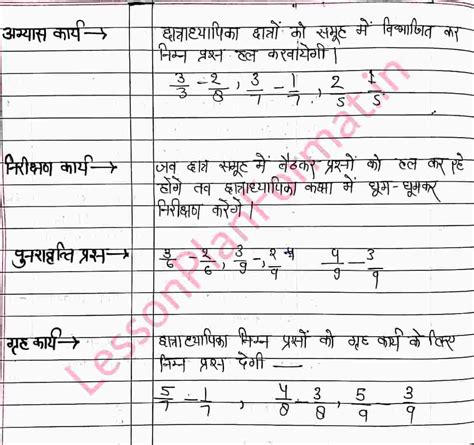 अभ्यास कार्य → छात्राध्यापिका छात्रों को समूह में विभाजित कर
निम्न प्रश्न हल करवायेगी।
3/3 - 2/8, 3/7 - 1/7, 2/5 1/5
निरीक्षण कार्य → जब छात्र समूह में बैठकर प्रश्नों को हल कर रहे
होंगे तब छात्राध्यापिका कक्षा में घूम-घूमकर
निरीक्षण करेंगे।
पुनरावृत्ति प्रश्न → 3/6 - 2/6, 3/9 - 2/9 4/9 - 3/9
गृह कार्य → छात्राध्यापिका निम्न प्रश्नों को गृह कार्य के लिए
निम्न प्रश्न देगी —
5/7 - 1/7, 4/8 - 3/8, 5/9 - 3/9
LessonPlanFormat.in